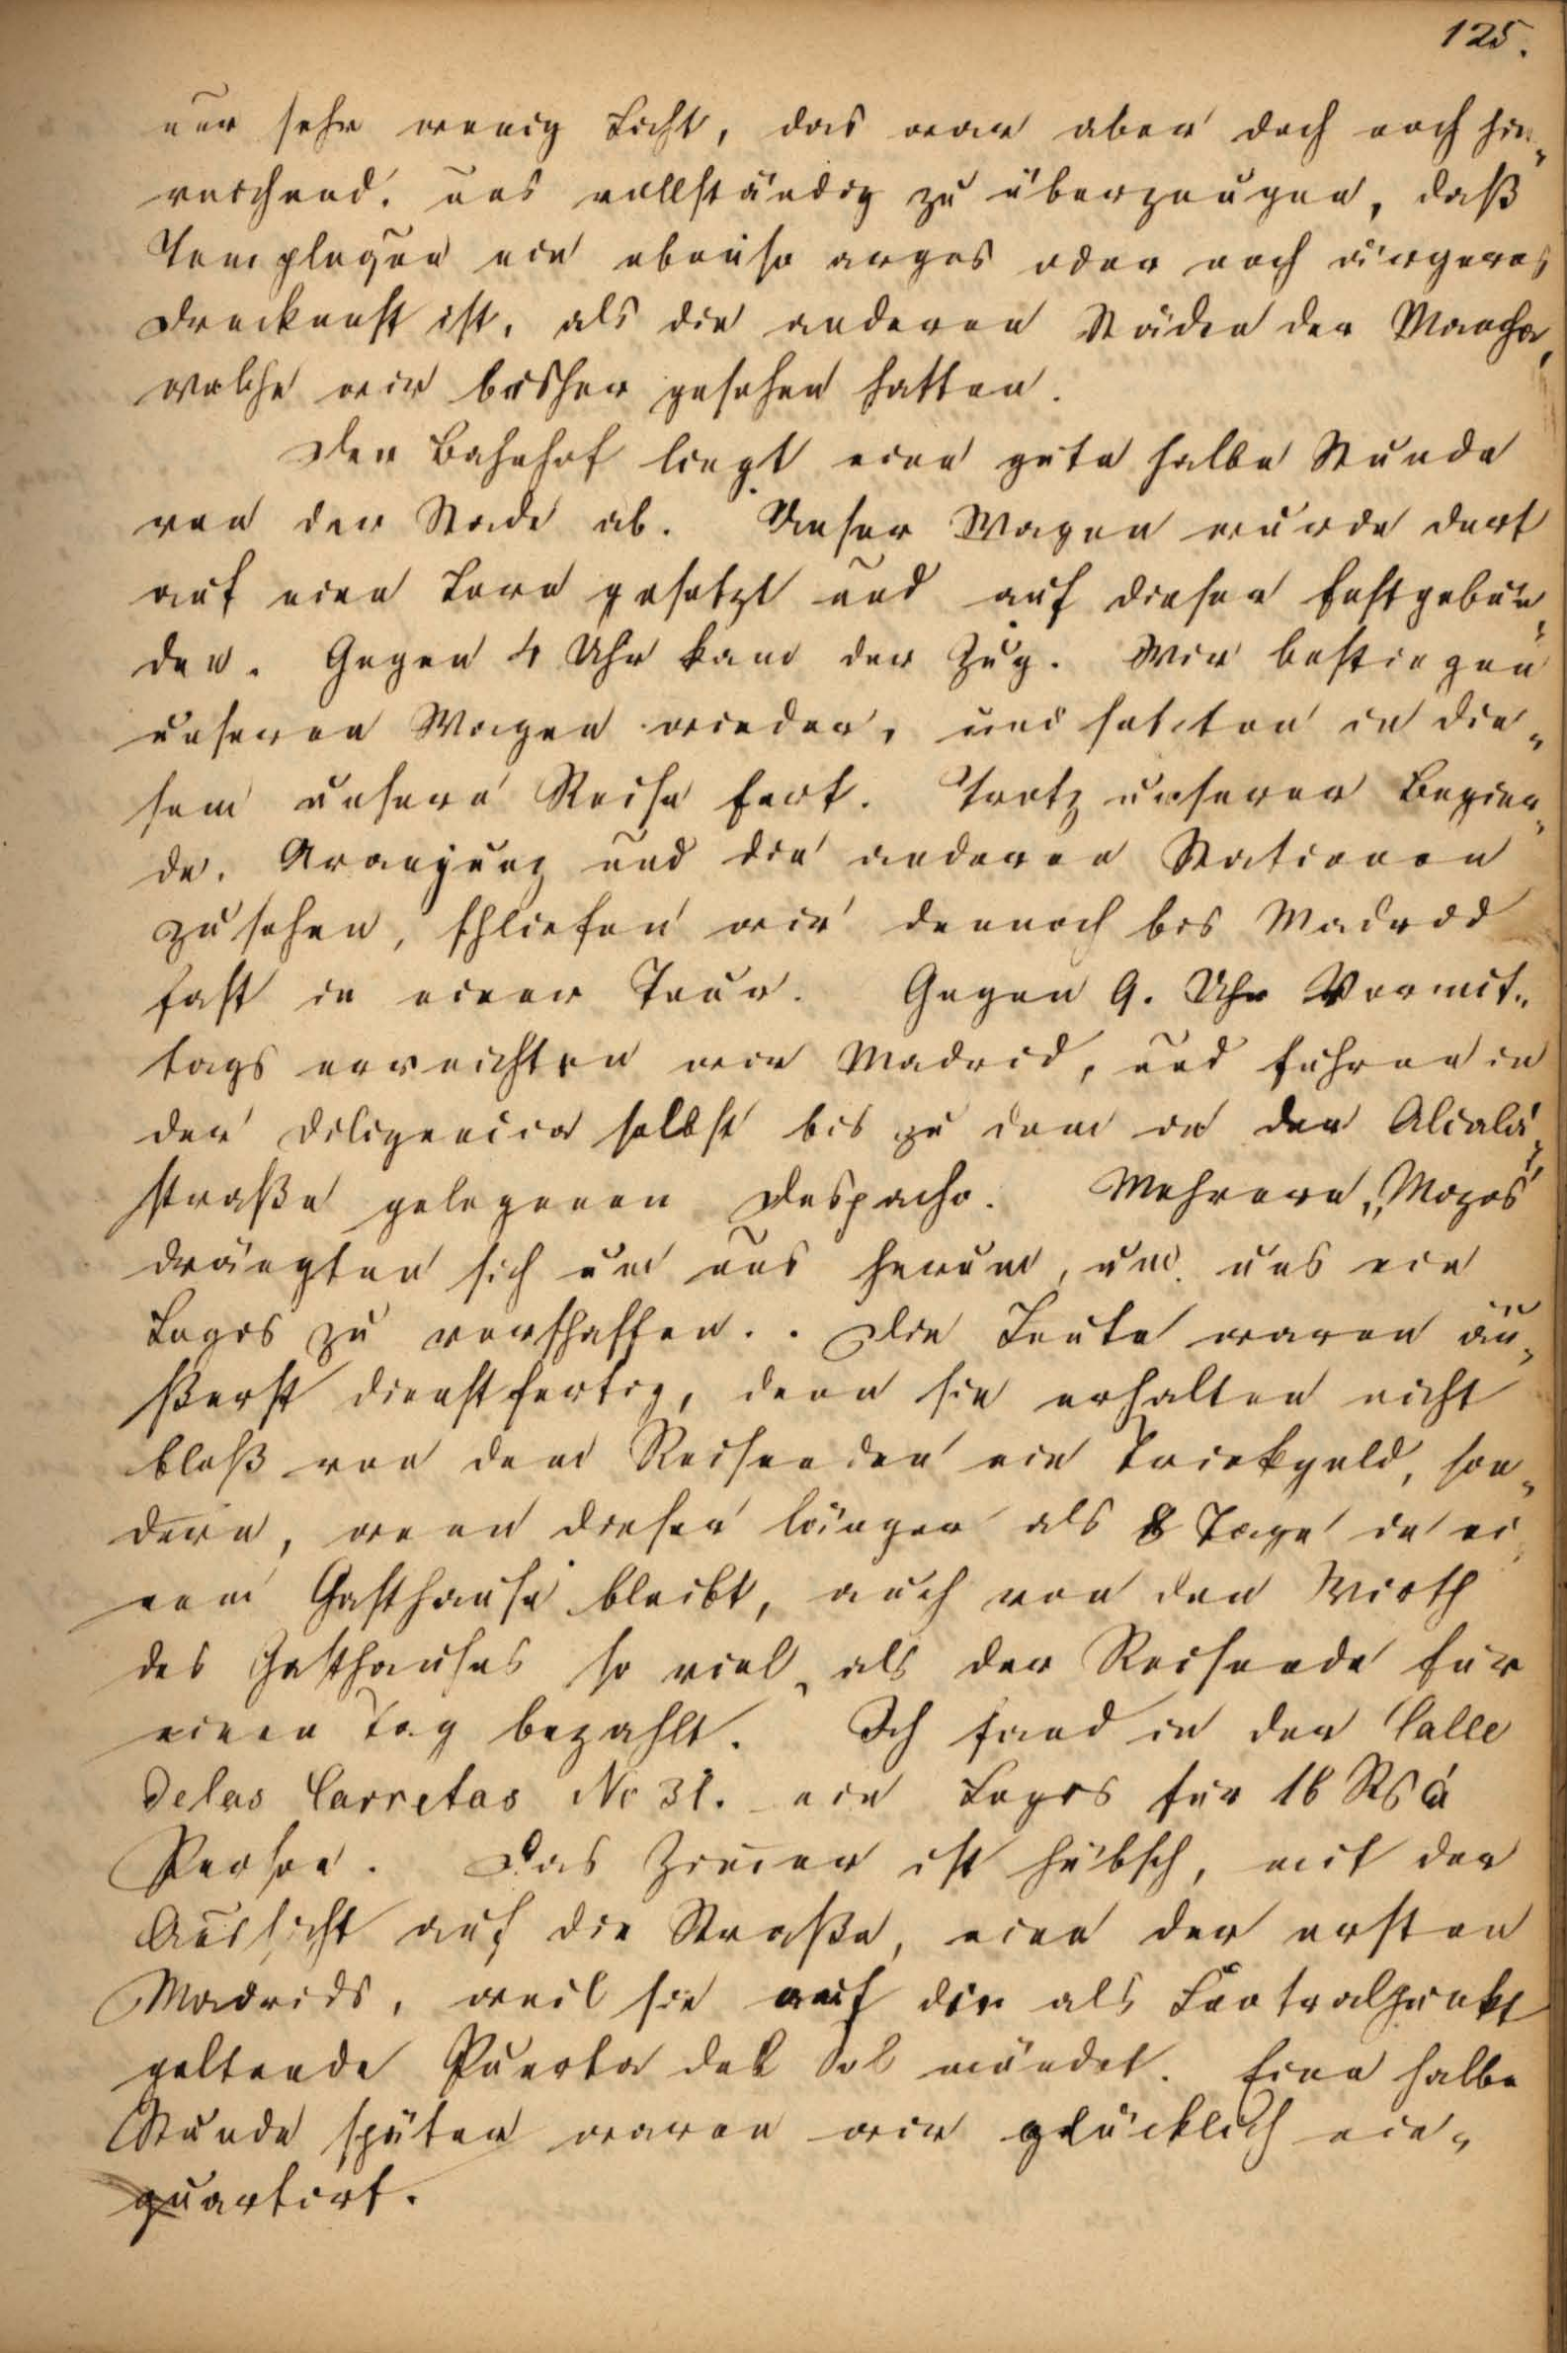 125.
nur sehr wenig Licht, das war aber doch noch hin„
reichend, uns vollständig zu überzeugen, daß
Templeque ein ebenso arges oder noch ärgeres
Drecknest ist, als die anderen Städte der Mancha,
welche wir bisher gesehen hatten.
Der Bahnhof liegt eine gute halbe Stunde
von der Stadt ab. Unser Wagen wurde dort
auf eine Lore gesetzt und auf dieser festgebun„
den. Gegen 4 Uhr kam der Zug. Wir bestiegen
unseren Wagen wieder, und setzten in die„
sem unsere Reise fort. Trotz unserer Begier„
de, Aranjuez und die anderen Stationen
zu sehen, schliefen wir dennoch bis Madrid
fast in einer Tour. Gegen 9. Uhr Vormit„
tags erreichten wir Madrid, und fuhren in
der Diligencia selbst bis zu dem in der Alcalá„
straße gelegenen Despacho. Mehrere „Mozos“
drängten sich um uns herum, um uns ein
Logis zu verschaffen. Die Leute waren äu„
ßerst dienstfertig, denn sie erhalten nicht
bloß von dem Reisenden ein Trinkgeld, son„
dern, wenn dieser länger als 8 Tage in ei„
nem Gasthause bleibt, auch von den Wirth
des Gasthauses so viel, als der Reisende für
einen Tag bezahlt. Ich fand in der Calle
de las Carretas No 31. ein Logis für 16 Rs à
Person. Das Zimmer ist hübsch, mit der
Aussicht auf die Straße, eine der ersten
Madrids, weil sie auf die als Centralpunkt
geltende Puerta del Sol mündet. Eine halbe
Stunde später waren wir glücklich ein„
quartirt.